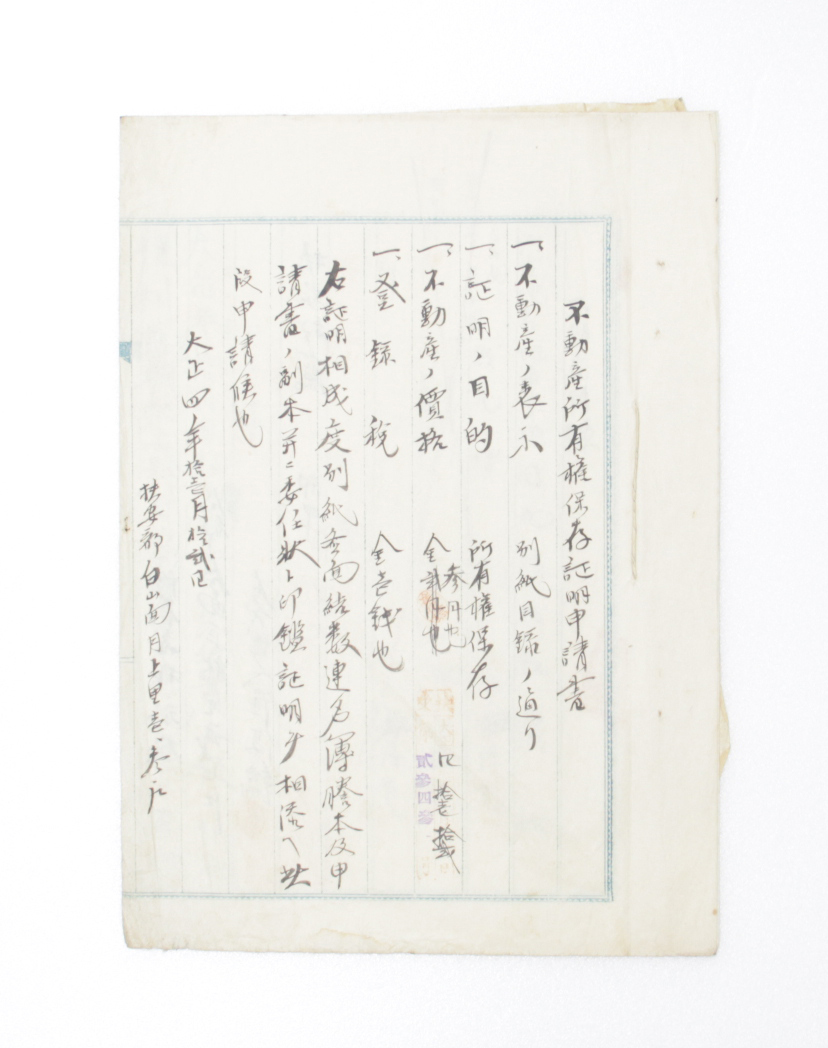 不動産所有權保存証明申請書
一、不動産ノ表示 別紙目録ノ通リ
一、証明ノ目的 所有權保存
一、不動産ノ價格 金貳円也
参円也
四 拾壱 拾貳
貳参四参
一、登録税 金壱銭也
右証明相成度別紙各面結数連名簿謄本及申
請書ノ副本並ニ委任状ト印鑑証明書相添ヘ此
段申請候也
大正四年拾壱月拾貳日
扶安郡白山面月上里壱、参、